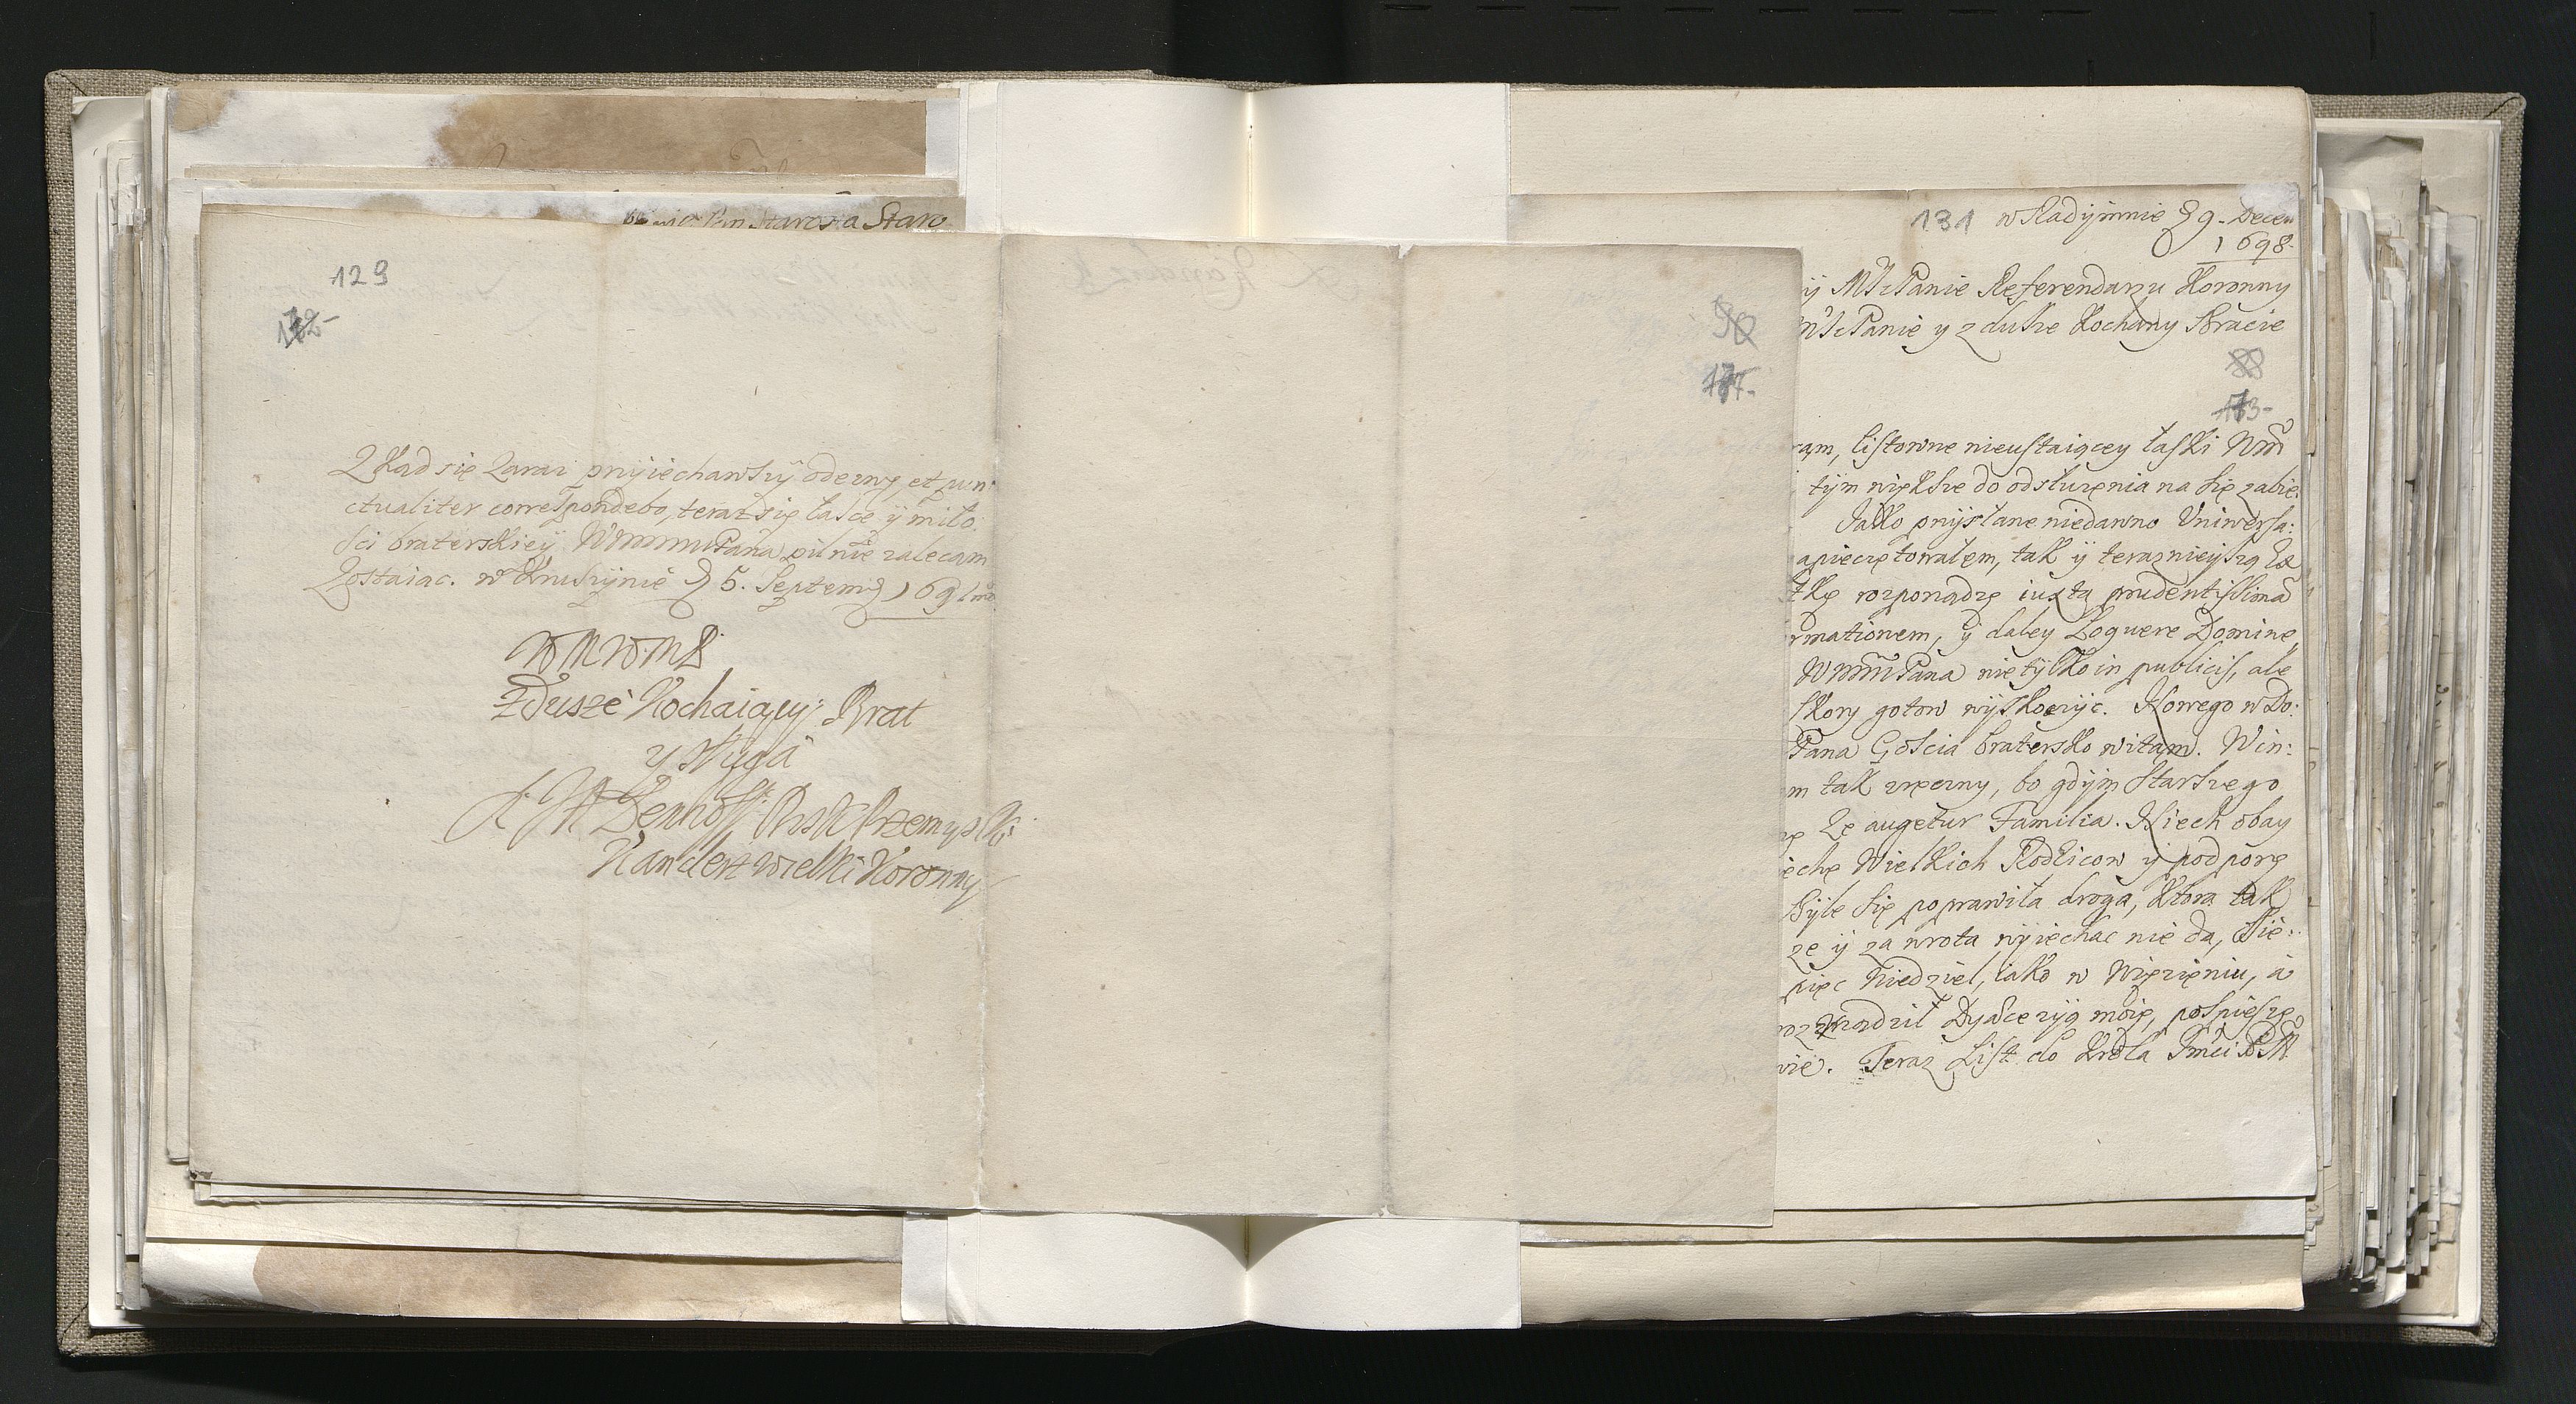 Pan Starosta Staro
129
172-
Zkąd się zaraz przyiechawszy odezwę, et pun:
ctualiter correspondebo, teraz się łasce ÿ miło:
sci braterskieÿ WmmmPana pilnie zalecam
Zostaiac. w Kruszÿnie D 5. Septembr 169
WMWMP
z Dusze Kochaiący Brat
y sługa
J M Denhoff Bisk Przemyslki
Kanclerz wielki Koronny
90
177-
131 w Radÿmnie D 9. Decem
1698.
ÿ MP Panie Referendarzu Koronny
Panie y z dusze Kochany Bracie
88
173-
ram, listowne nieustaiącey łaski Wm
tÿm większe do odsłużenia na się zabie:
Jako przÿsłane niedawno Uniwersa:
apieczętowałem, tak ÿ teraznieyszą
tkę rozporządzę iuxta prudentissima
rmationem, ÿ daleÿ Loquere Domine,
WmmPana nie tÿlko in publicis, ale
skory gotow wÿskoczÿc. Nowego w Do:
Pana Gościa bratersko witam. Win:
m tak rzezny, bo gdÿm Starszego
Ze augetur Familia. Niech obay
echę Wielkich Rodzicow ÿ podporę
Bÿle się poprawiła droga, Ktora tak
ze ÿ za wrota wÿiechac nie da, Sie:
pięc Niedziel, iako w Więzieniu, á
Dyaecezÿą moię, pospieszę
wie. Teraz List do Krola Jmći P M